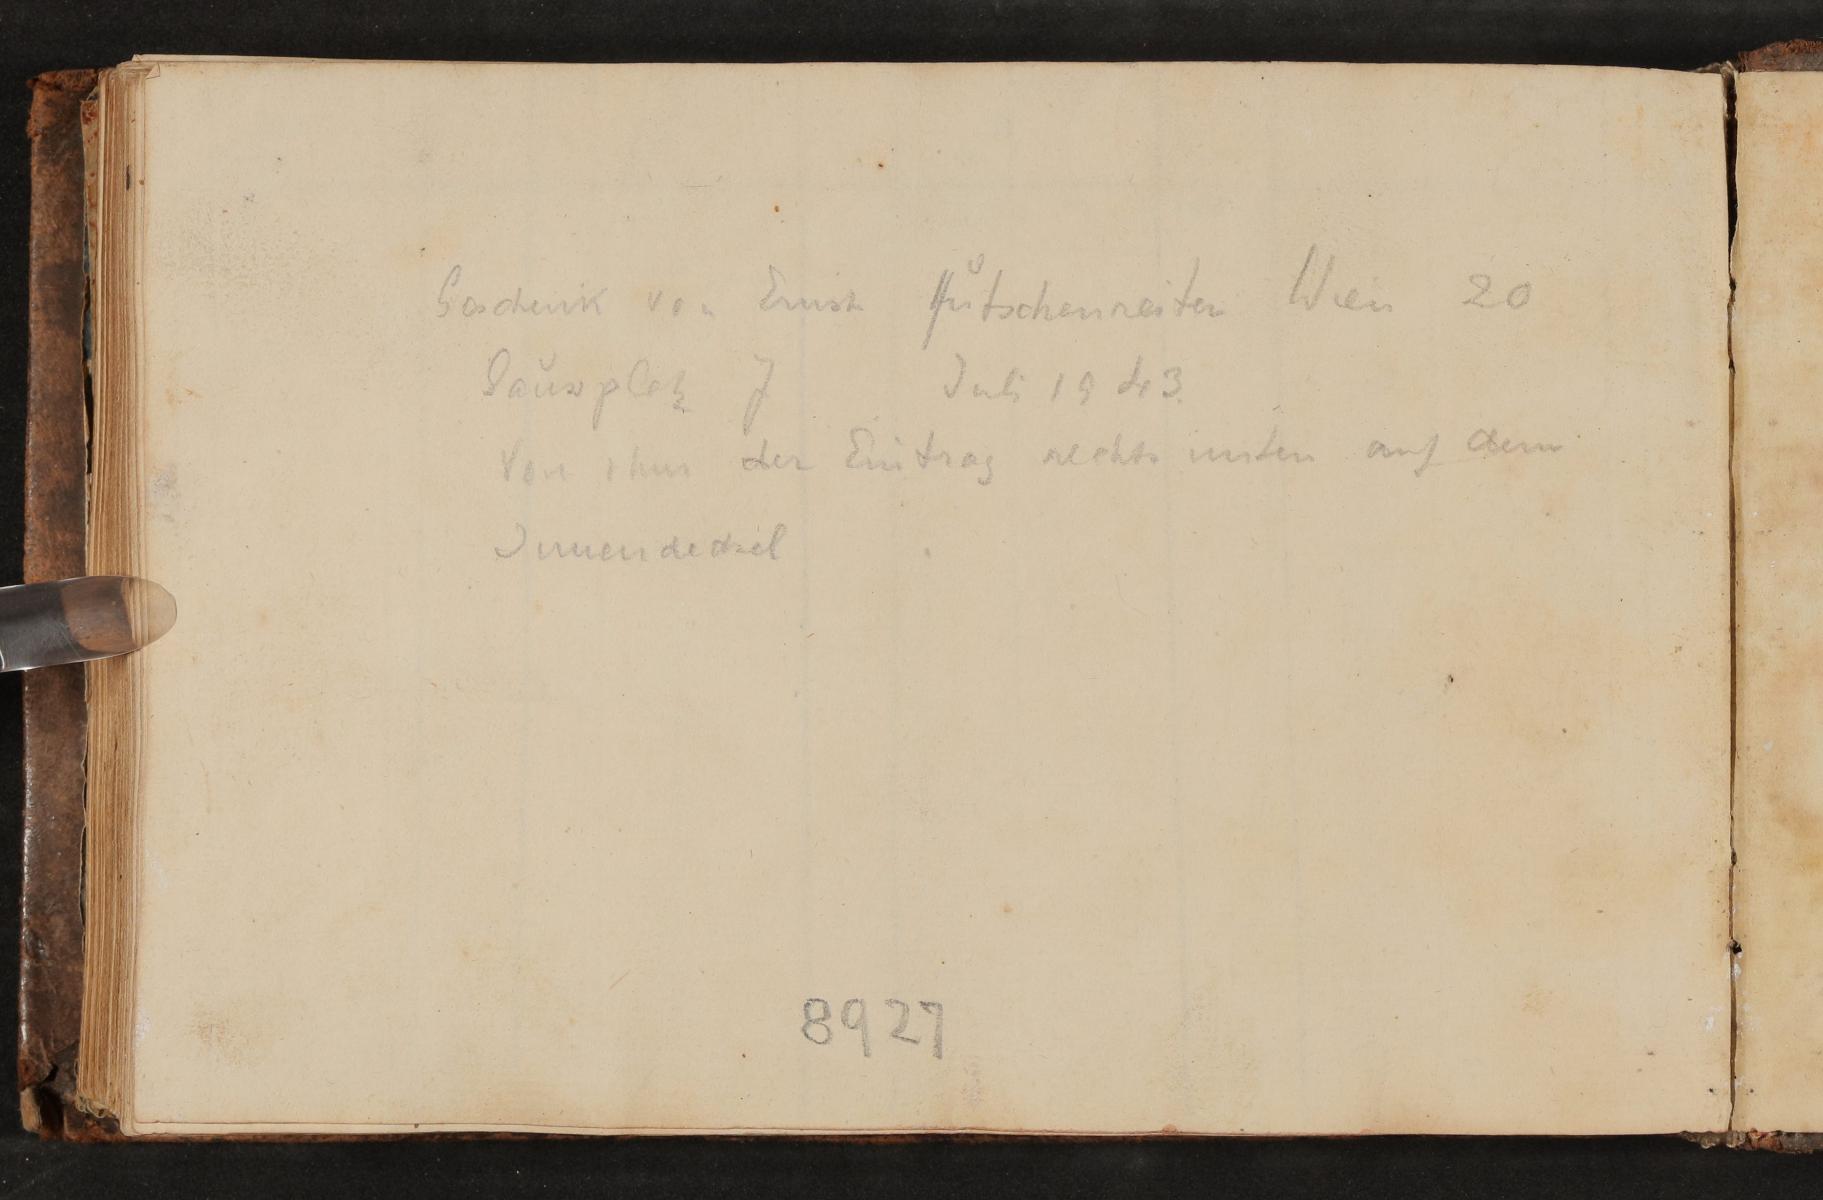 Geschenk von Ernst Hutschenreiter Wien 20
Sausplatz 7 Juli 1943.
von ihm der Eintrag rechts unten auf dem
Innendeckel
8927